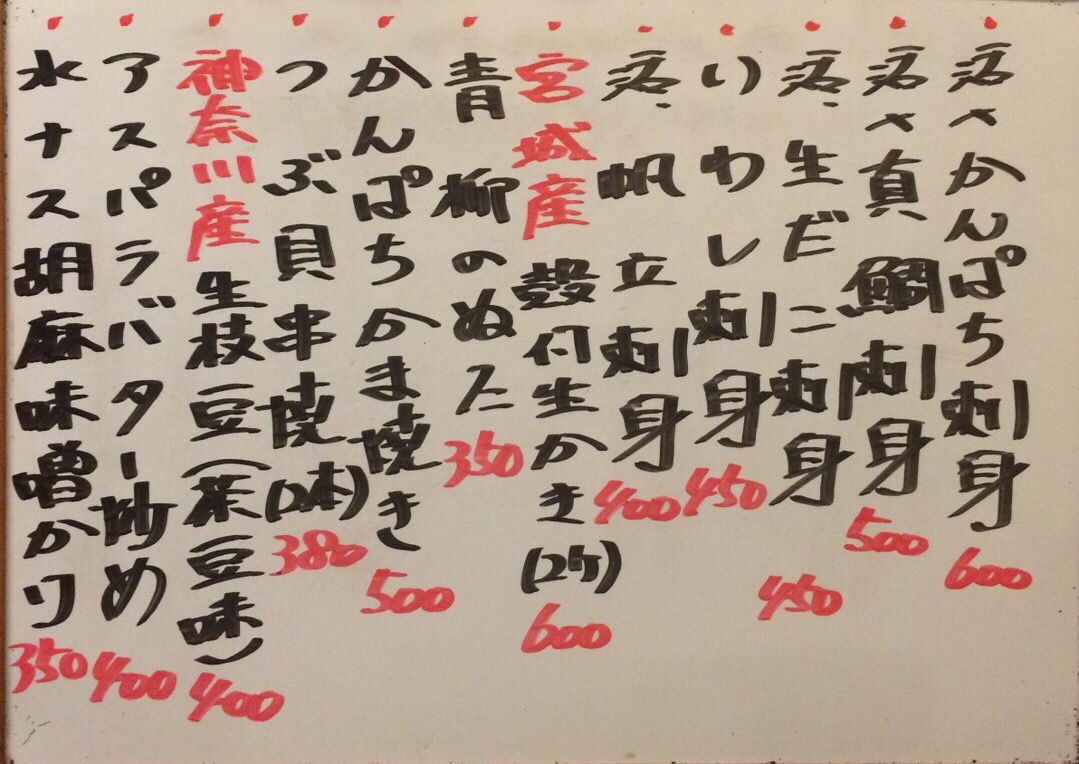 活〆かんぱち刺身 600
活〆真鯛刺身 500
活、生だこ刺身 450
いわし刺身 450
活、帆立刺身 400
宮城産殻付生かき(2ケ) 600
青柳のぬた 350
かんぱちかま焼き 500
つぶ貝串焼(2本) 380
神奈川産生枝豆(茶豆味) 400
アスパラバター炒め 400
水ナス胡麻味噌かけ 350